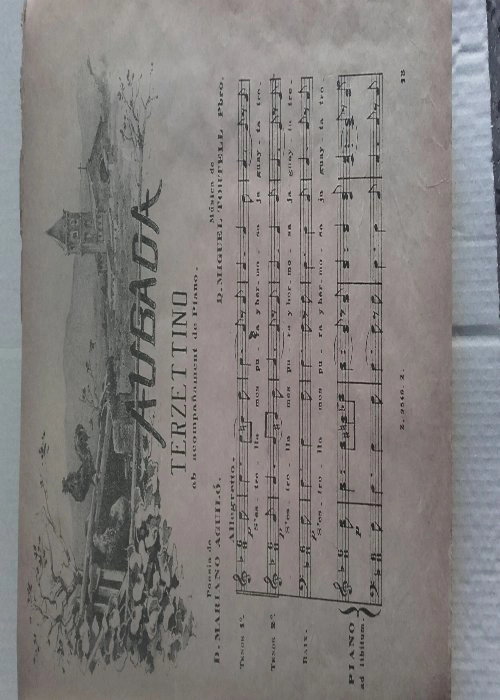 AUBADA
TERZETTINO
ab acompañament de Piano.
Poesía de
D. MARIANO AGUILÓ.
Música de
D. MIGUEL TORTELL Pbro.
Allegretto.
TENOR 1º
p
S'es - tre - lla mes pu - ra y her - mo - sa ja guay - ta tre -
TENOR 2º
p
S'es - tre - lla mes pu - ra y her - mo - sa ja guay - ta tre -
BAIX.
p
S'es - tre - lla mes pu - ra y her - mo - sa ja guay - ta tre -
PIANO
ad libitum.
p
Z. 9540. Z.